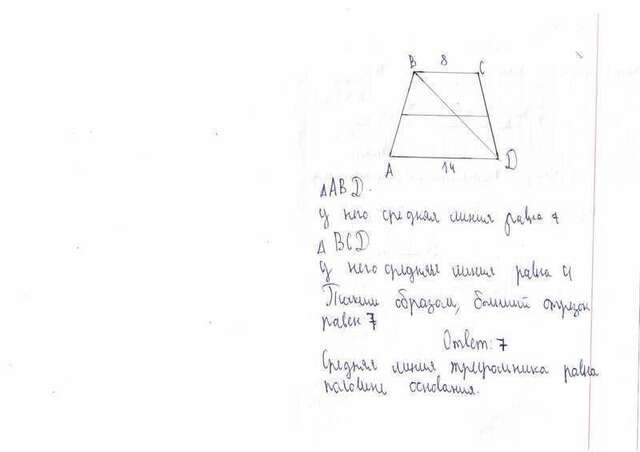 B 8 C
A 14 D
△ABD.
У него средняя линия равна 7
△ BCD
У него средняя линия равна 4
Таким образом, больший отрезок
равен 7
Ответ: 7
Средняя линия треугольника равна
половине основания.